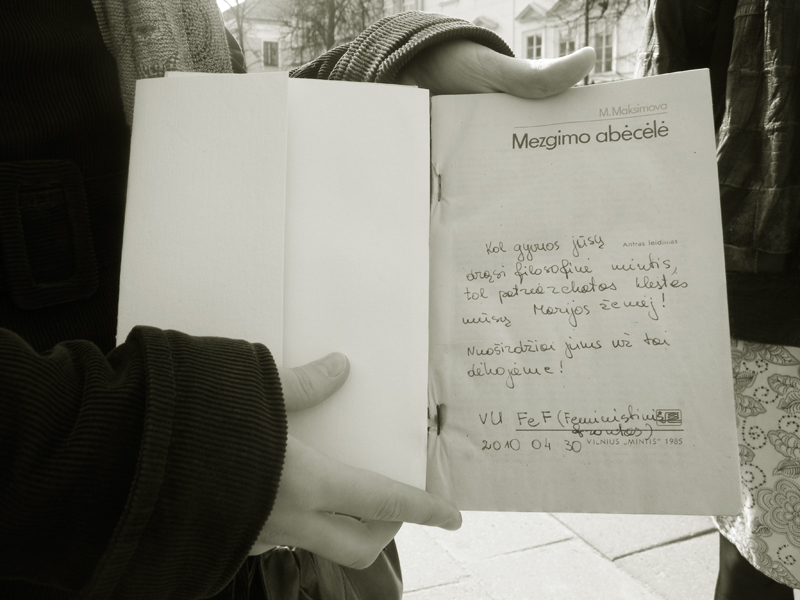 M. Maksimova
Mezgimo abėcėlė
Kol gyvuos jūsų
Antras leidimas
drąsi filosofinė mintis,
tol patriarchatas klestės
mūsų Marijos žemėj!
Nuoširdžiai jums už tai
dėkojame!
VU FeF (Feministinis
frontas)
2010 04 30
VILNIUS „MINTIS" 1985